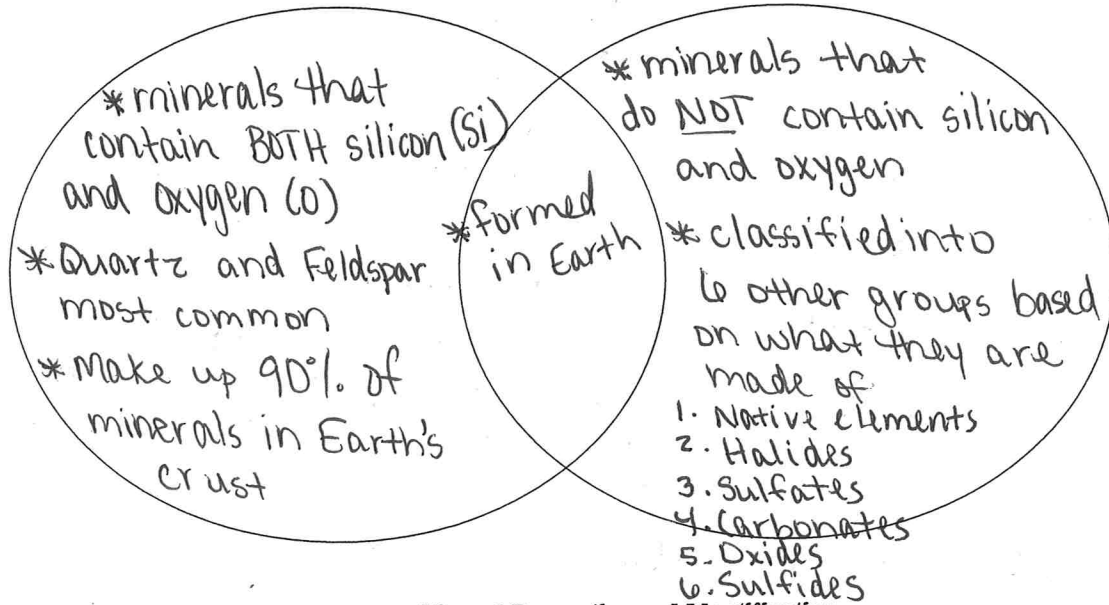 * minerals that
contain BOTH silicon (Si)
and oxygen (O)
* Quartz and Feldspar
most common
* Make up 90% of
minerals in Earth's
crust
* formed
in Earth
* minerals that
do NOT contain silicon
and oxygen
* classified into
6 other groups based
on what they are
made of
1. Native elements
2. Halides
3. Sulfates
4. Carbonates
5. Oxides
6. Sulfides